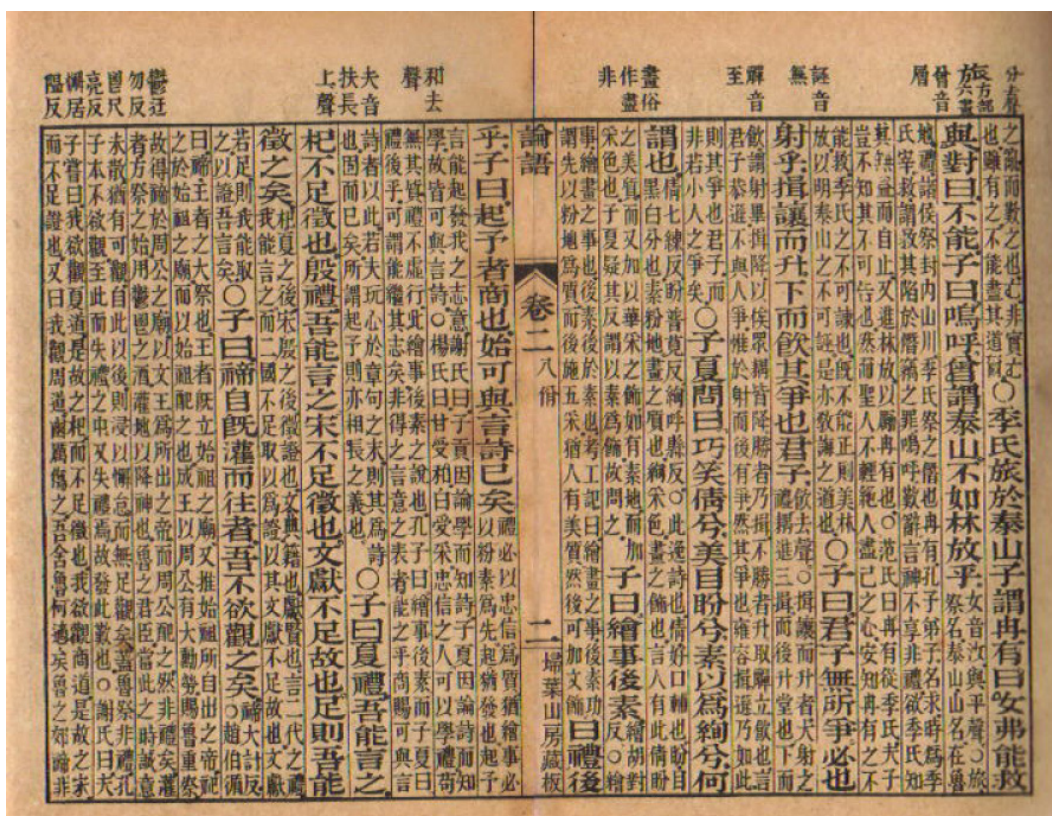 分去聲
旅方部
方六畫
曾音
層
誣音
無
觶音
至
畫俗
作畵
非
和去
聲
夫音
扶長
上聲
鬱迂
勿反
鬯尺
亮反
懈居
隘反
之亂而歎之也亡非實亡
也雖有之不能盡其道爾
○季氏旅於泰山子謂冉有曰女弗能救
與對曰不能子曰嗚呼曾謂泰山不如林放乎
女音汝與平聲○旅
祭名泰山山名在魯
地禮諸侯祭封內山川季氏祭之僭也冉有孔子弟子名求時爲季
氏宰救謂救其陷於僭竊之罪嗚呼歎辭言神不享非禮欲季氏知
其無益而自止又進林放以厲冉有也○范氏曰冉有從季氏夫子
豈不知其不可告也然而聖人不輕絶人盡己之心安知冉有之不
能救季氏之不可諫也既不能正則美林
放以明泰山之不可誣是亦敎誨之道也
○子曰君子無所爭必也
射乎揖讓而升下而飲其爭也君子
飲去聲○揖讓而升者大射之
禮耦進三揖而後升堂也下而
飲謂射畢揖降以俟衆耦皆降勝者乃揖不勝者升取觶立飲也言
君子恭遜不與人爭惟於射而後有爭然其爭也雍容揖遜乃如此
則其爭也君子而
非若小人之爭矣
○子夏問曰巧笑倩兮美目盼兮素以爲絢兮何
謂也
倩七練反盼普莧反絢呼縣反○此逸詩也倩好口輔也盼目
黑白分也素粉地畫之質也絢采色畫之飾也言人有此倩盼
之美質而又加以華采之飾如有素地而加
采色也子夏疑其反謂以素爲飾故問之
子曰繪事後素
繪胡對
反○繪
事繪畫之事也後素後於素也考工記曰繪畫之事後素功
謂先以粉地爲質而後施五采猶人有美質然後可加文飾
曰禮後
論語
卷二
八佾
二
埽葉山房藏板
乎子曰起予者商也始可與言詩已矣
禮必以忠信爲質猶繪事必
以粉素爲先起猶發也起予
言能起發我之志意謝氏曰子貢因論學而知詩子夏因論詩而知
學故皆可與言詩○楊氏曰甘受和白受采忠信之人可以學禮苟
無其質禮不虛行此繪事後素之說也孔子曰繪事後素而子夏曰
禮後乎可謂能繼其志矣非得之言意之表者能之乎商賜可與言
詩者以此若夫玩心於章句之末則其爲詩
也固而已矣所謂起予則亦相長之義也
○子曰夏禮吾能言之
杞不足徵也殷禮吾能言之宋不足徵也文獻不足故也足則吾能
徵之矣
杞夏之後宋殷之後徵證也文典籍也獻賢也言二代之禮
我能言之而二國不足取以爲證以其文獻不足故也文獻
若足則我能取
之以證吾言矣
○子曰禘自既灌而往者吾不欲觀之矣
禘大計反
○趙伯循
曰禘王者之大祭也王者既立始祖之廟又推始祖所自出之帝祀
之於始祖之廟而以始祖配之也成王以周公有大勳勞賜魯重祭
故得禘於周公之廟以文王爲所出之帝而周公配之然非禮矣灌
者方祭之始用鬱鬯之酒灌地以降神也魯之君臣當此之時誠意
未散猶有可觀自此以後則浸以懈怠而無足觀矣蓋魯祭非禮孔
子本不欲觀至此而失禮之中又失禮焉故發此歎也○謝氏曰夫
子嘗曰我欲觀夏道是故之杞而不足證也我欲觀商道是故之宋
而不足證也又曰我觀周道幽厲傷之吾舍魯何適矣魯之郊禘非